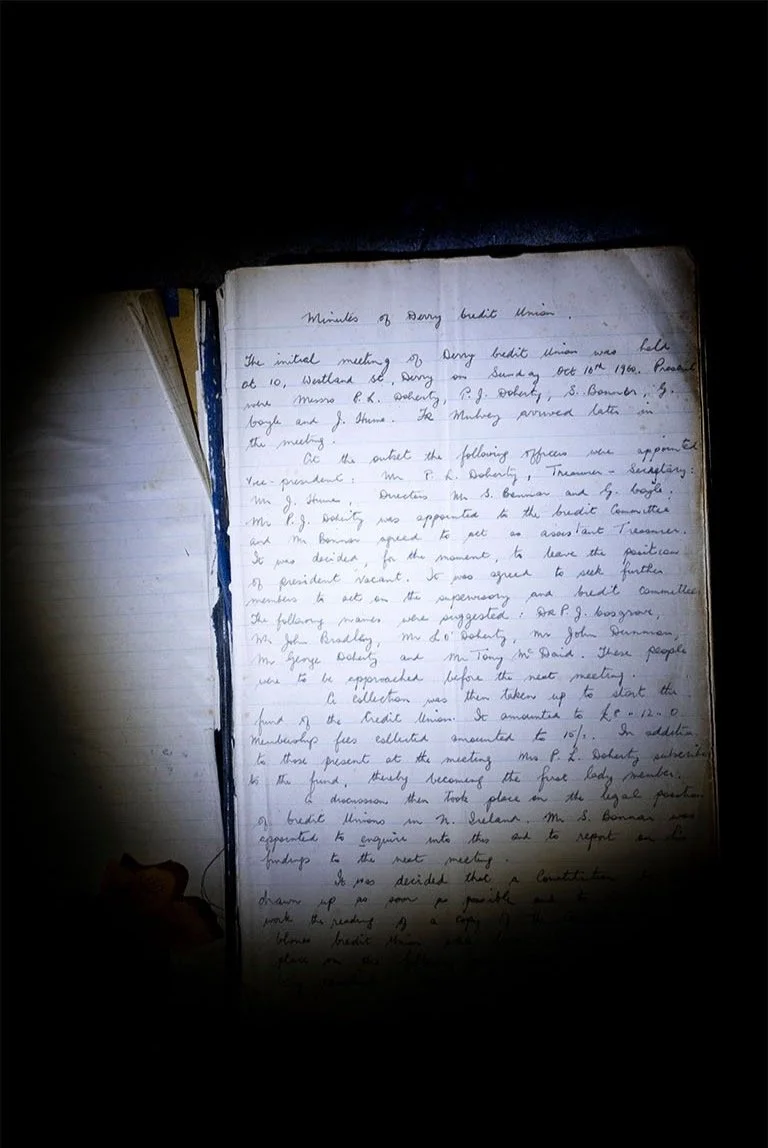 Minutes of Derry Credit Union.
The initial meeting of Derry Credit Union was held
at 10, Westland St., Derry on Sunday Oct 16th 1960. Present
were Messrs P.L. Doherty, P.J. Doherty, S. Bonner, G.
Coyle and J. Hume. Fr Mulvey arrived later in
the meeting.
At the outset the following officers were appointed
Vice-president: Mr P.L. Doherty, Treasurer-Secretary:
Mr J. Hume, Directors Mr S. Bonnar and G. Coyle.
Mr P.J. Doherty was appointed to the Credit Committee
and Mr Bonnar agreed to act as assistant Treasurer.
It was decided, for the moment, to leave the position
of president vacant. It was agreed to seek further
members to act on the supervisory and credit Committees
The following names were suggested: Dr P.J. Cosgrove,
Mr John Bradley, Mr L O'Doherty, Mr John
Mr George Doherty and Mr Tony McDaid. These people
were to be approached before the next meeting.
A collection was then taken up to start the
fund of the Credit Union. It amounted to 12 - 0
Membership fees collected amounted to In addition
to those present at the meeting Mrs P.L. Doherty subscribed
to the fund, thereby becoming the first lady member.
A discussion then took place on the legal position
of Credit Unions in N. Ireland. Mr S. Bonnar was
appointed to enquire into this and to report on his
findings to the next meeting.
It was decided that a Constitution
drawn up as soon as possible and to
work the reading of a copy of the
Credit Union
place on the following